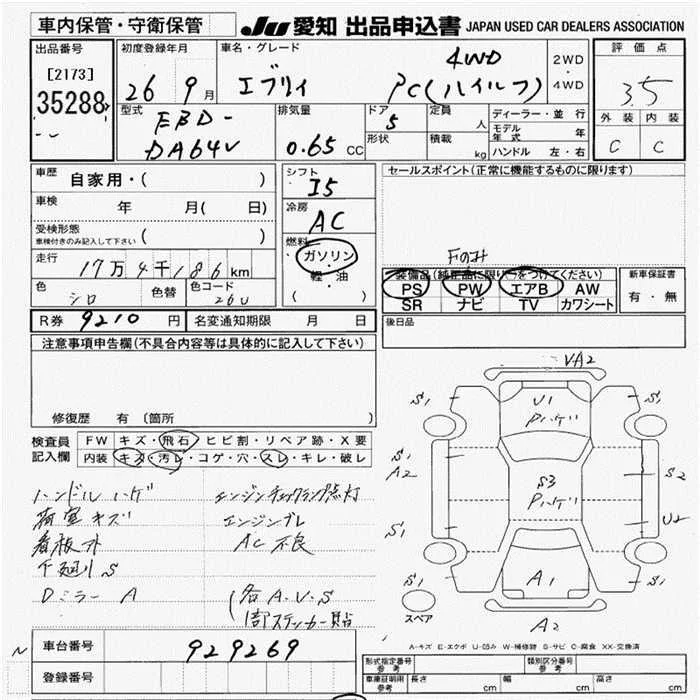 車内保管・守衛保管
JU 愛知 出品申込書 JAPAN USED CAR DEALERS ASSOCIATION
出品番号
[2173]
35288
初度登録年月
26 9月
車名・グレード
エブリイ
4WD
PC(ハイルーフ)
2WD
・
4WD
評価点
3.5
外装 内装
C C
型式
EBD-
DA64V
排気量
0.65 CC
ドア 5
形状
定員 人
積載 kg
ディーラー・並行
モデル年式 年
ハンドル 左・右
車歴 自家用・( )
車検 年 月( 日)
受検形態
車検付きのみ記入して下さい ( )
走行 17万4千186 km
色 シロ
色替
色コード 26U
シフト
I5
冷房
AC
燃料
ガソリン
・
軽・油
( )
セールスポイント(正常に機能するものに限ります)
Fのみ
装備品(純正品に限り○をつけてください)
PS PW エアB AW
SR ナビ TV カワシート
新車保証書
有・無
後日品
R券 9210 円 名変通知期限 月 日
注意事項申告欄(不具合内容等は具体的に記入して下さい)
修復歴 有 (箇所 )
検査員記入欄
FW キズ・飛石・ヒビ割・リペア跡・X要
内装 キズ・汚レ・コゲ・穴・スレ・キレ・破レ
ハンドル ハゲ
荷室キズ
看板外
下廻り S
Dミラー A
エンジンチェックランプ点灯
エンジンブレ
AC 不良
各A.V.S
ステッカー
VA2
S1 S1
U1
ハゲ
S1
A2
S3
ハゲ
S2
U2
S1
S1 S1
A1
A2
スペア
A-キズ E-エクボ U-凹み W-補修跡 S-サビ C-腐食 XX-交換済
N
車台番号 929269
登録番号
形式指定番号 参考
類別区分番号 参考
車庫証明用 参考 長さ cm 幅 cm 高さ cm